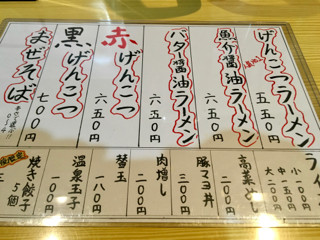 げんこつラーメン
五五〇円
魚介醤油ラーメン
六五〇円
バター醤油ラーメン
六五〇円
赤げんこつ
六五〇円
黒げんこつ
六五〇円
まぜそば
七〇〇円
ライ
小一〇〇円
中一五〇円
大二〇〇円
高菜
二〇〇円
豚マヨ丼
三〇〇円
肉増し
二〇〇円
替玉
一〇〇円
温泉玉子
一〇〇円
焼き餃子
五個